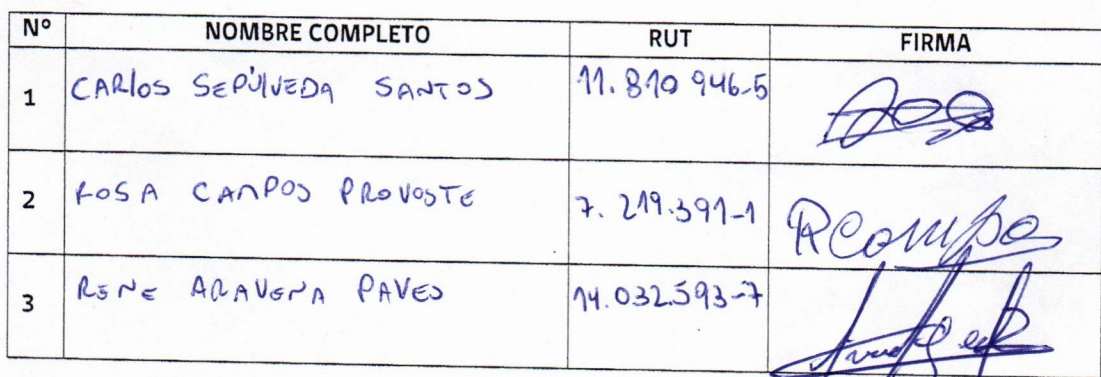 N° NOMBRE COMPLETO RUT FIRMA
1 CARlos SEPÚlVEDA SANTOS 11.810 946-5
2 ROSA CAMPOS PROVOSTE 7.219.391-1 RCampo
3 RENE ARAVENA PAVES 14.032.593-7